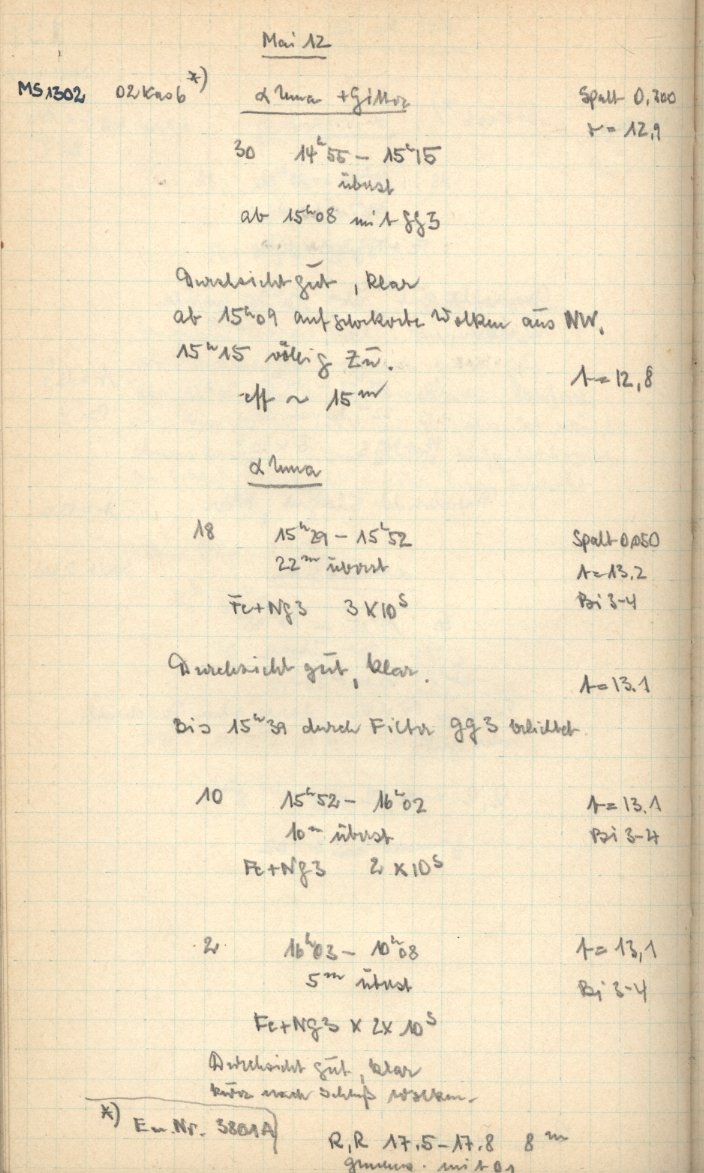 Mai 12
MS1302 02Kao6 *) α Uma + Gitter Spalt 0,300
r = 12,9
30 14h55 – 15h15
überst
ab 15h08 mit gg3
Durchsicht gut, klar
ab 15h09 aufgelockerte Wolken aus NW.
15h15 völlig zu.
eff ~ 15m t = 12,8
α Uma
18 15h29 – 15h52 Spalt 0,050
22m überst t = 13.2
Fe+Ng3 3 X 10s Bi 3-4
Durchsicht gut, klar. t = 13.1
Bis 15h39 durch Filter gg3 belichtet.
10 15h52 – 16h02 t = 13.1
10m überst Bi 3-4
Fe+Ng3 2 X 10s
2 16h03 – 10h08 t = 13,1
5m überst Bi 3-4
Fe+Ng3 X 2X 10s
Durchsicht gut, klar
kurz nach Schluß Wolken.
*) Em. Nr. 3801A
R,R 17.5–17.8 8m
mit